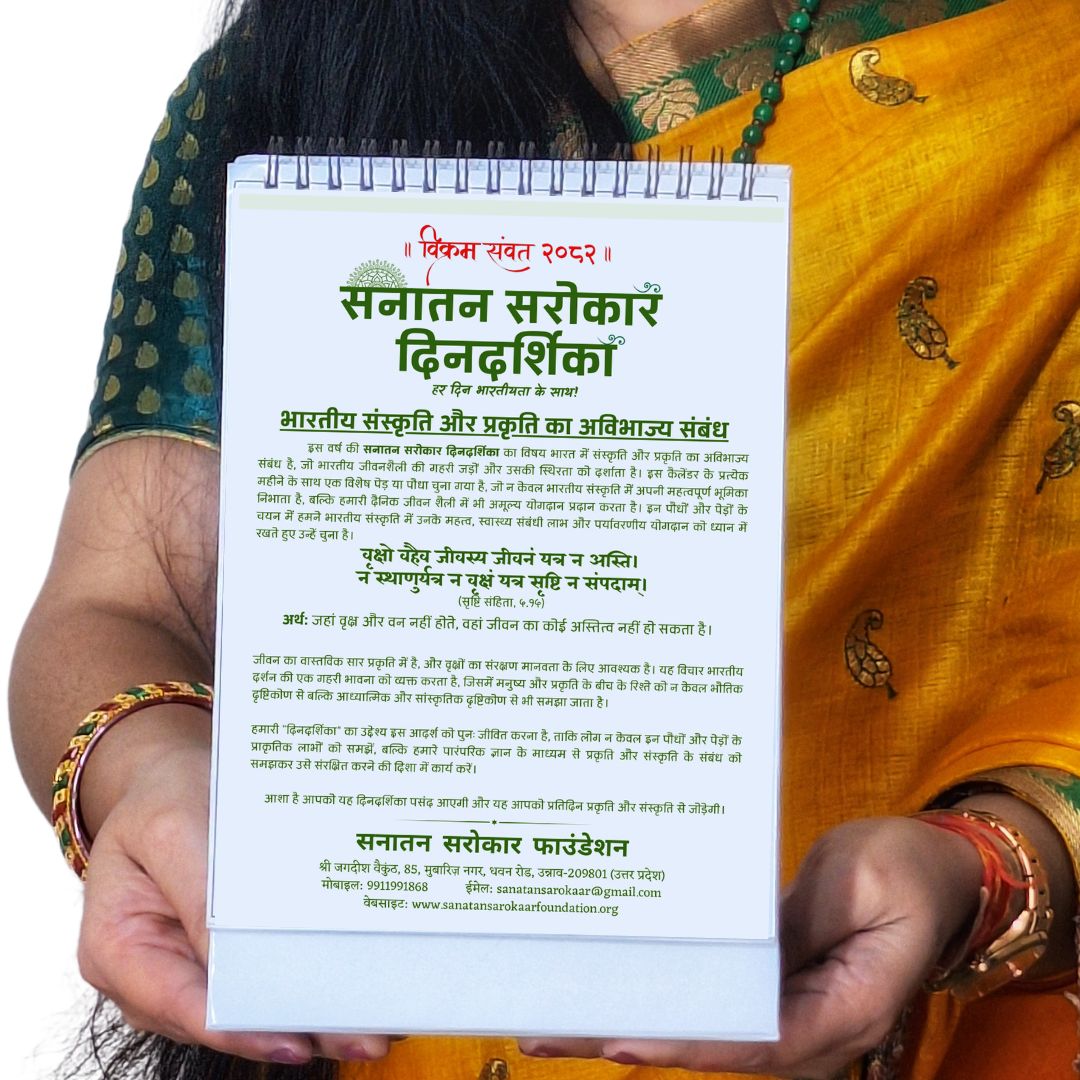 ॥ विक्रम संवत २०८२ ॥
सनातन सरोकार
दिनदर्शिका
हर दिन भारतीयता के साथ!
भारतीय संस्कृति और प्रकृति का अविभाज्य संबंध
इस वर्ष की सनातन सरोकार दिनदर्शिका का विषय भारत में संस्कृति और प्रकृति का अविभाज्य
संबंध है, जो भारतीय जीवनशैली की गहरी जड़ों और उसकी स्थिरता को दर्शाता है। इस कैलेंडर के प्रत्येक
महीने के साथ एक विशेष पेड़ या पौधा चुना गया है, जो न केवल भारतीय संस्कृति में अपनी महत्वपूर्ण भूमिका
निभाता है, बल्कि हमारी दैनिक जीवन शैली में भी अमूल्य योगदान प्रदान करता है। इन पौधों और पेड़ों के
चयन में हमने भारतीय संस्कृति में उनके महत्व, स्वास्थ्य संबंधी लाभ और पर्यावरणीय योगदान को ध्यान में
रखते हुए उन्हें चुना है।
वृक्षो वहैव जीवस्य जीवनं यत्र न अस्ति।
न स्थाणुर्यत्र न वृक्षं यत्र सृष्टि न संपदाम्।
(सृष्टि संहिता, ५.१५)
अर्थ: जहां वृक्ष और वन नहीं होते, वहां जीवन का कोई अस्तित्व नहीं हो सकता है।
जीवन का वास्तविक सार प्रकृति में है, और वृक्षों का संरक्षण मानवता के लिए आवश्यक है। यह विचार भारतीय
दर्शन की एक गहरी भावना को व्यक्त करता है, जिसमें मनुष्य और प्रकृति के बीच के रिश्ते को न केवल भौतिक
दृष्टिकोण से बल्कि आध्यात्मिक और सांस्कृतिक दृष्टिकोण से भी समझा जाता है।
हमारी "दिनदर्शिका" का उद्देश्य इस आदर्श को पुनः जीवित करना है, ताकि लोग न केवल इन पौधों और पेड़ों के
प्राकृतिक लाभों को समझें, बल्कि हमारे पारंपरिक ज्ञान के माध्यम से प्रकृति और संस्कृति के संबंध को
समझकर उसे संरक्षित करने की दिशा में कार्य करें।
आशा है आपको यह दिनदर्शिका पसंद आएगी और यह आपको प्रतिदिन प्रकृति और संस्कृति से जोड़ेगी।
सनातन सरोकार फाउंडेशन
श्री जगदीश वैकुंठ, 85, मुबारिज़ नगर, धवन रोड, उन्नाव-209801 (उत्तर प्रदेश)
मोबाइल: 9911991868 ईमेल: sanatansarokaar@gmail.com
वेबसाइट: www.sanatansarokaarfoundation.org